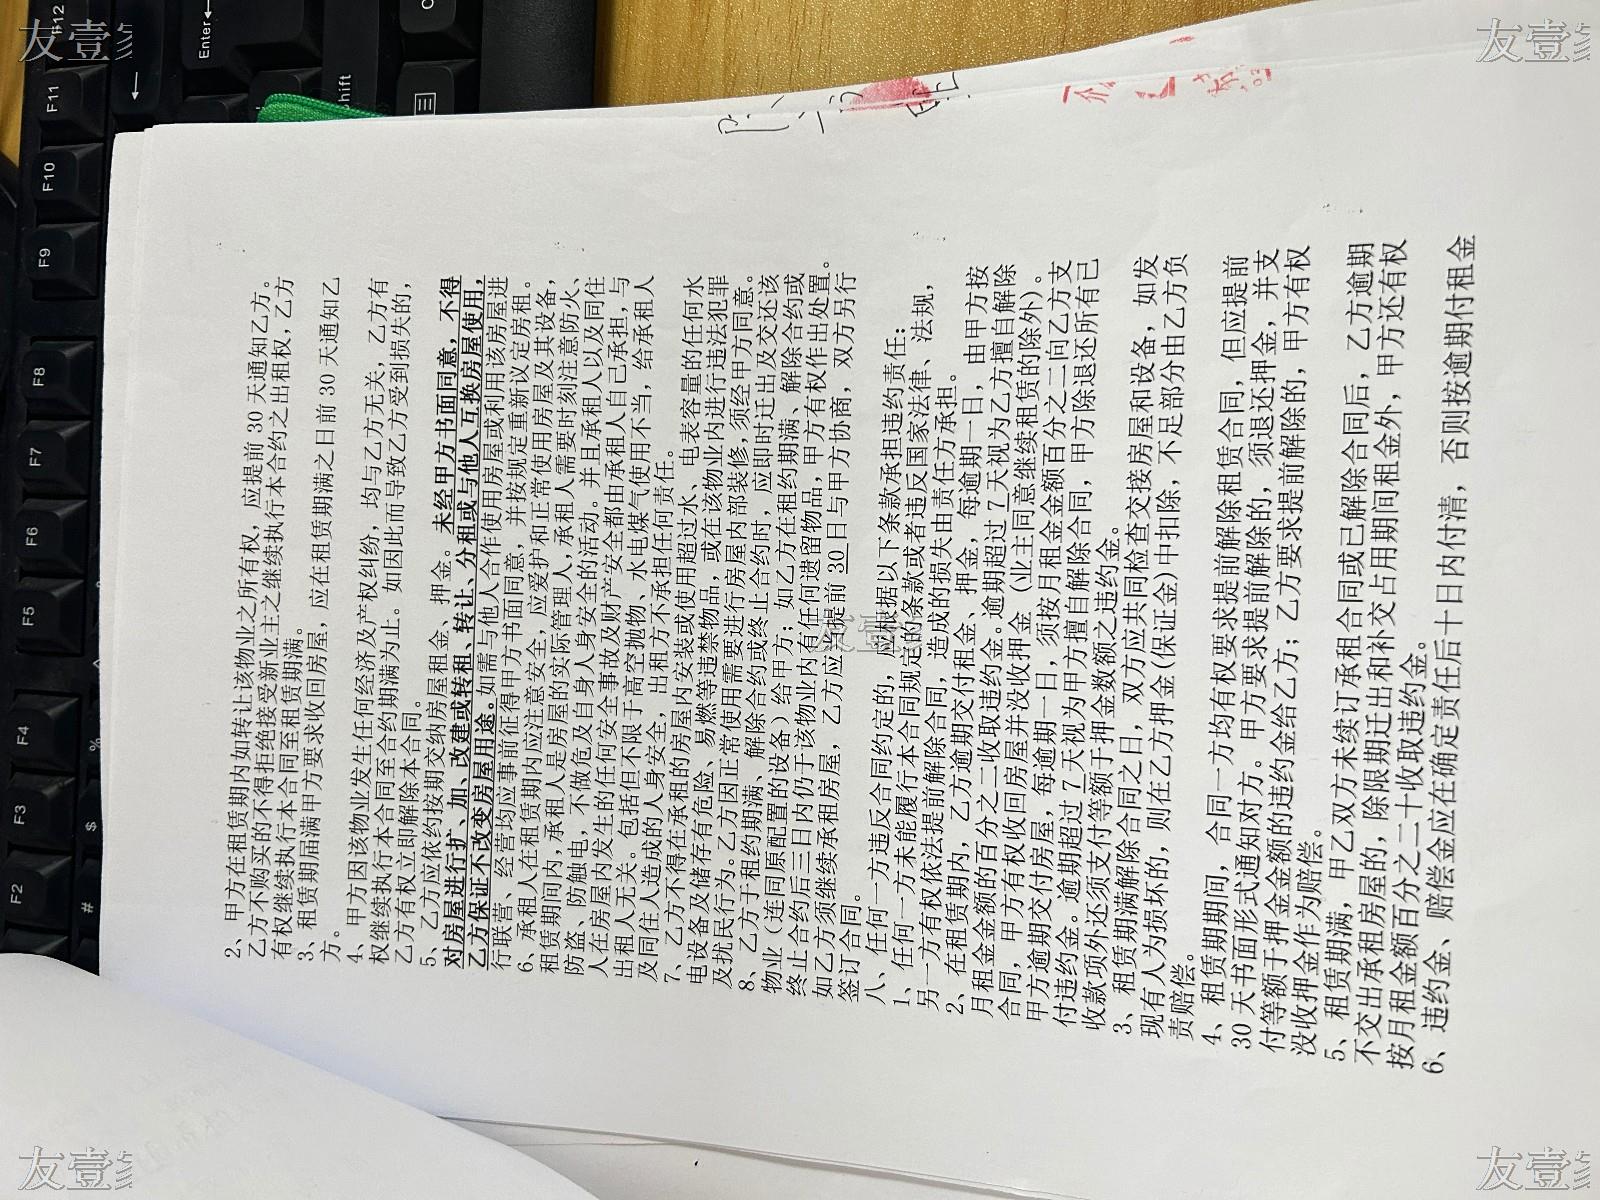 2、甲方在租赁期内如转让该物业之所有权，应提前 30 天通知乙方。
乙方不购买的不得拒绝接受新业主之继续执行本合约之出租权，乙方
有权继续执行本合同至租赁期满。
3、租赁期届满甲方要求收回房屋，应在租赁期满之日前 30 天通知乙
方。
4、甲方因该物业发生任何经济及产权纠纷，均与乙方无关，乙方有
权继续执行本合同至合约期满为止。如因此而导致乙方受到损失的，
乙方有权立即解除本合同。
5、乙方应依约按期交纳房屋租金、押金。未经甲方书面同意，不得
对房屋进行扩、加、改建或转租、转让、分租或与他人互换房屋使用，
乙方保证不改变房屋用途。如需与他人合作使用房屋或利用该房屋进
行联营、经营均应事前征得甲方书面同意，并按规定重新议定房租。
6、承租人在租赁期内应注意安全，应爱护和正常使用房屋及其设备，
租赁期间内，承租人是房屋的实际管理人，承租人需要时刻注意防火、
防盗、防触电，不做危及自身人身安全的活动。并且承租人以及同住
人在房屋内发生的任何安全事故及财产安全都由承租人自己承担，与
出租人无关。包括但不限于高空抛物、水电煤气使用不当，给承租人
及同住人造成的人身安全，出租方不承担任何责任。
7、乙方不得在承租的房屋内安装或使用超过水、电表容量的任何水
电设备及储存有危险、易燃等违禁物品，或在该物业内进行违法犯罪
及扰民行为。乙方因正常使用需要进行房屋内部装修，须经甲方同意。
8、乙方于租约期满、解除合约或终止合约时，应即时迁出及交还该
物业（连同原配置的设备）给甲方；如乙方在租约期满、解除合约或
终止合约后三日内仍于该物业内有任何遗留物品，甲方有权作出处置。
如乙方须继续承租房屋，乙方应当提前 30 日与甲方协商，双方另行
签订合同。
八、任何一方违反合同约定的，应根据以下条款承担违约责任：
1、任何一方未能履行本合同规定的条款或者违反国家法律、法规，
另一方有权依法提前解除合同，造成的损失由责任方承担。
2、在租赁期内，乙方逾期交付租金、押金，每逾期一日，由甲方按
月租金金额的百分之二收取违约金。逾期超过 7 天视为乙方擅自解除
合同，甲方有权收回房屋并没收押金（业主同意继续租赁的除外）。
甲方逾期交付房屋，每逾期一日，须按月租金金额百分之二向乙方支
付违约金。逾期超过 7 天视为甲方擅自解除合同，甲方除退还所有已
收款项外还须支付等额于押金数额之违约金。
3、租赁期满解除合同之日，双方应共同检查交接房屋和设备，如发
现有人为损坏的，则在乙方押金(保证金)中扣除，不足部分由乙方负
责赔偿。
4、租赁期期间，合同一方均有权要求提前解除租赁合同，但应提前
30 天书面形式通知对方。甲方要求提前解除的，须退还押金，并支
付等额于押金金额的违约金给乙方；乙方要求提前解除的，甲方有权
没收押金作为赔偿。
5、租赁期满，甲乙双方未续订承租合同或已解除合同后，乙方逾期
不交出承租房屋的，除限期迁出和补交占用期间租金外，甲方还有权
按月租金金额百分之二十收取违约金。
6、违约金、赔偿金应在确定责任后十日内付清，否则按逾期付租金
F12
F11
F10
F9
F8
F7
F6
F5
F4
F3
F2
Enter
hift
%
$
#
友壹家
友壹家
友壹家
友壹家
友壹